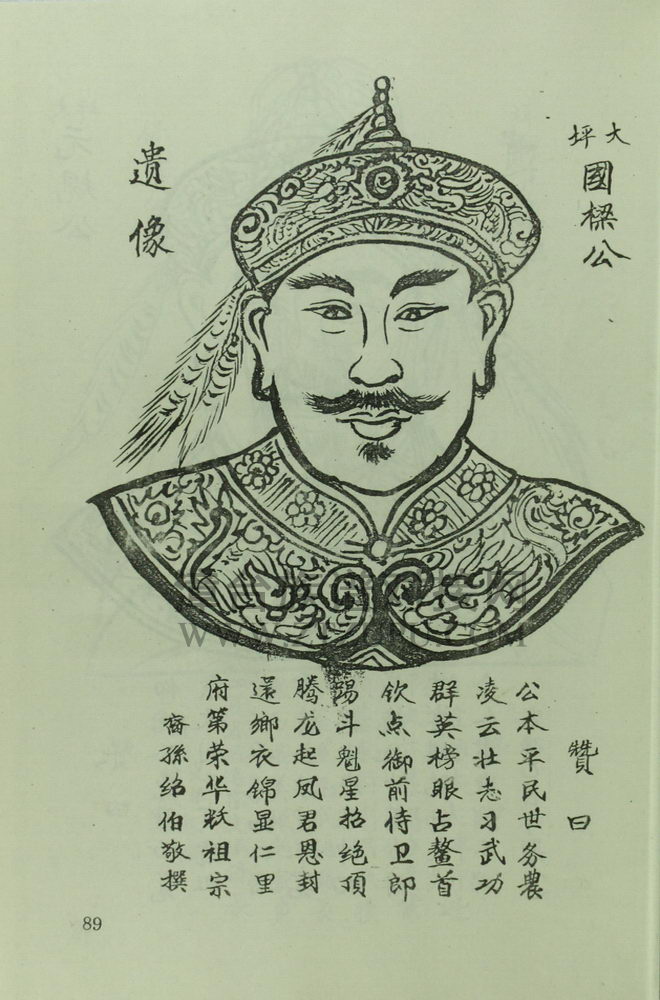 大坪
國樑公
遗像
贊曰
公本平民世务農
凌云壮志习武功
群英榜眼占鳌首
钦点御前侍卫郎
踢斗魁星招绝頂
腾龙起凤君恩封
还鄉衣锦显仁里
府第荣华妖祖宗
裔孫绍伯敬撰
89